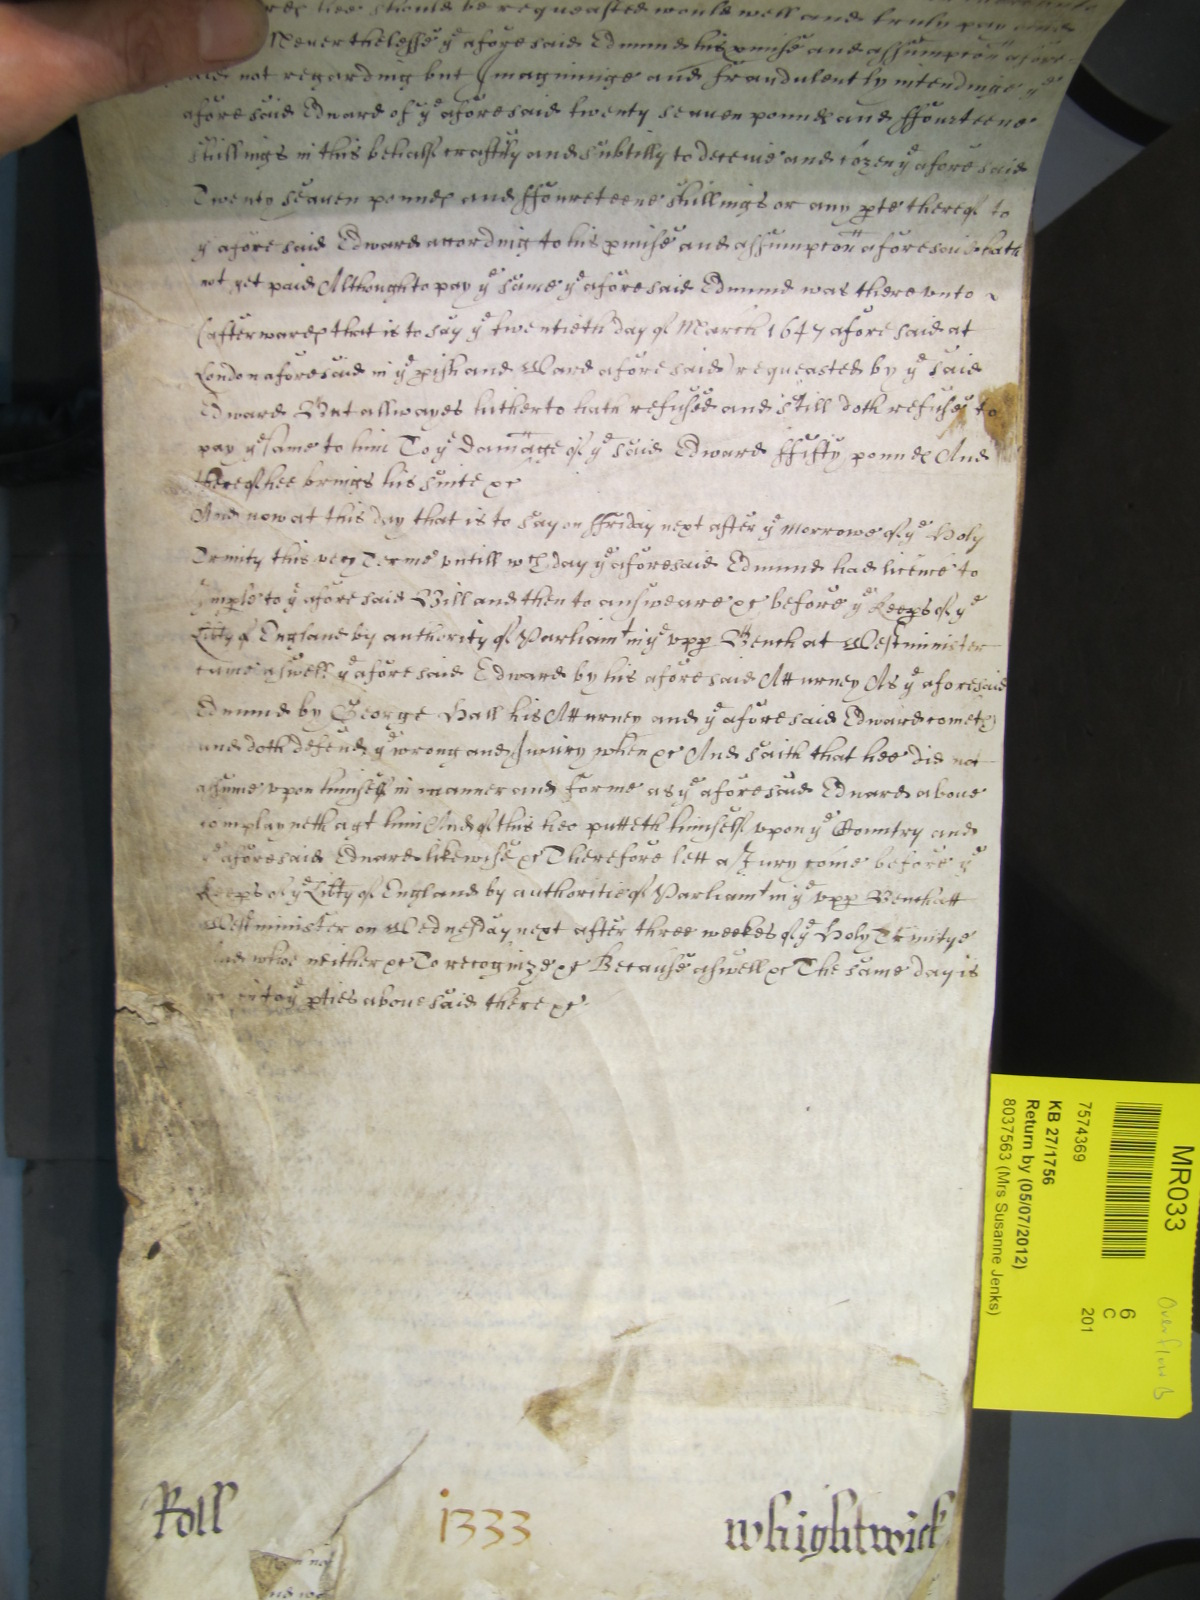 hee should be requeasted would well and truly pay and
Neverthelesse ye aforesaid Edmund his pmise and assumpcon afore
said not regarding but Imagininge and fraudulently intendinge ye
aforesaid Edward of ye aforesaid twenty seauen pounds and ffourteene
shillings in this behalf craftily and subtilly to deceiue and cozen ye aforesaid
Twenty seauen pounds and ffoureteene shillings or any pte thereof to
ye aforesaid Edward according to his pmise and assumpcon aforesaid hath
not yet paid Although to pay ye same ye aforesaid Edmund was there vnto
(afterwards that is to say ye twentieth day of March 1647 aforesaid at
London aforesaid in ye pish and Ward aforesaid) requeasted by ye said
Edward But allwayes hitherto hath refused and still doth refuse to
pay ye same to him To ye damage of ye said Edward ffifty pounds And
thereof hee brings his suite &c
And now at this day that is to say on ffriday next after ye morrowe of ye Holy
Trinity this very Terme vntill wch day ye aforesaid Edmund had licence to
Imple to ye aforesaid Bill and then to answeare &c before ye Keeps of ye
Libty of England by authority of Parliamt in ye vpp Bench at Westminister
came aswell ye aforesaid Edward by his aforesaid Atturney As ye aforesaid
Edmund by George Hall his Atturney and ye aforesaid Edward cometh
and doth defend ye wrong and Iniury when &c And saith that hee did not
assume vpon himself in manner and forme as ye aforesaid Edward aboue
complayneth agt him And of this hee putteth himself vpon ye Country and
ye aforesaid Edward likewise &c Therefore lett a Jury come before ye
Keeps of ye Libty of England by authoritie of Parliamt in ye vpp Bench att
Westminister on Wednesday next after three weekes of ye Holy Trinitye
And whoe neither &c To recognize &c Because aswell &c The same day is
to ye pties aboue said there &c
Roll 1333 Whightwick
MR033
7574369
KB 27/1756
Return by (05/07/2012)
8037563 (Mrs Susanne Jenks)
6
C
201
Overflow B